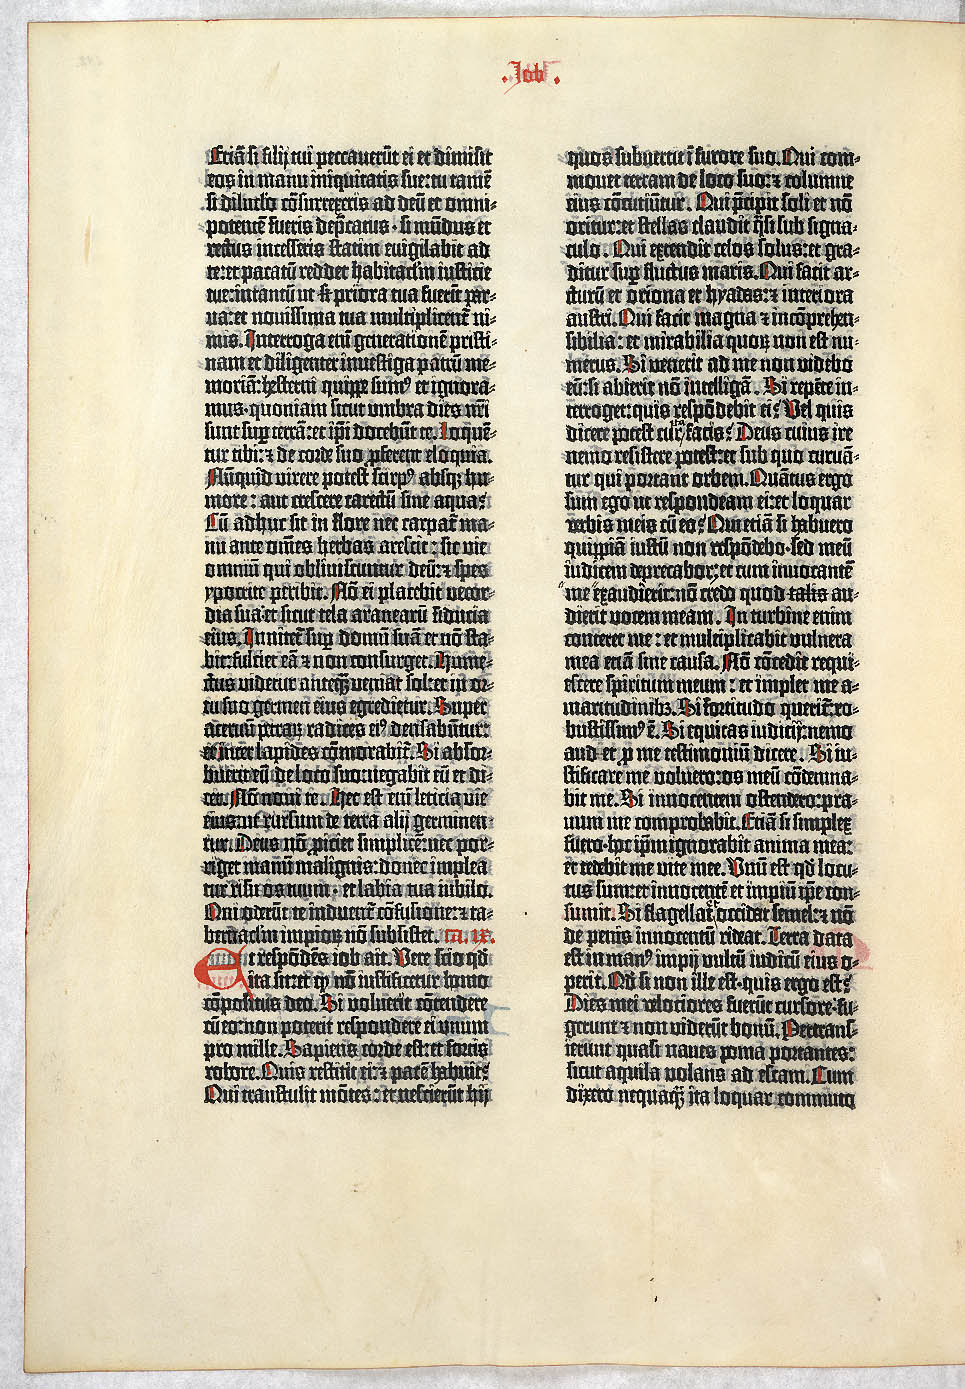 .Job.
Etiā si filij tui peccaverūt ei et dimisit
eos in manu iniquitatis sue: tu tamē
si diluclo cōsurrexeris ad deū et omni-
potentē fueris dep̄catus · si mūdus et
rectus incesseris statim evigilabit ad
te: et pacatū reddet habitaclm iusticie
tue: intantū ut si priora tua fuerīt par-
va: et novissima tua multiplicent̄ ni-
mis. Interroga em̄ generationē pristi-
nam et diligenter investiga patrū me-
moriā: hesterni quippe sumꝰ et ignora-
mus · quoniam sicut umbra dies nr̄i
sunt sup̄ terrā: et ip̄i docebūt te. Loquē-
tur tibi: ⁊ de corde suo ꝓferent eloquia.
Nūquid virere potest scirpꝰ absqꝫ hu-
more: aut crescere carectū sine aqua?
Cū adhuc sit in flore nec carpat̄ ma-
nu ante om̄es herbas arescit: sic vie
omniū qui obliviscuntur deū: ⁊ spes
ypocrite peribit. Nō ei placebit vecor-
dia sua: et sicut tela aranearū fiducia
eius. Innitet̄ sup̄ domū suā et nō sta-
bit: fulciet eā ⁊ non consurget. Hume-
ctus videtur anteqꝫ veniat sol: et in or-
tu suo germen eius egredietur. Super
acervū petraꝝ radices eiꝰ densabūtur:
et inter lapides cōmorabit̄. Si absor-
buerit eū de loco suo: negabit eū et di-
cet. Nō novi te. Hec est em̄ leticia vie
eius: ut rursum de terra alij germinen-
tur. Deus nō ꝓiciet simplicē: nec por-
riget manū malignis: donec implea-
tur risu os tuum · et labia tua iubilo.
Qui oderūt te induent̄ cōfusione: ⁊ ta-
bernaclm impioꝝ nō subsistet. ca. ix.
Et respōdēs iob ait. Vere scio qd̄
ita sit: et qꝫ nō iustificetur homo
cōpositus deo. Si voluerit cōtendere
cū eo: non poterit respondere ei unum
pro mille. Sapiens corde est: et fortis
robore. Quis restitit ei: ⁊ pacē habuit?
Qui transtulit mōtes: et nescierūt hij
quos subvertit ī furore suo. Qui com-
movet terram de loco suo: ⁊ columne
eius cōcutiūtur. Qui p̄cipit soli et nō
oritur: et stellas claudit q̄si sub signa-
culo. Qui extendit celos solus: et gra-
ditur sup̄ fluctus maris. Qui facit ar-
cturū et oriona et hyadas: ⁊ interiora
austri. Qui facit magna ⁊ incōprehen-
sibilia: et mirabilia quoꝝ non est nu-
merus. Si venerit ad me non videbo
eū: si abierit nō intelligā. Si repēte in-
terroget: quis respōdebit ei? Vel quis
dicere potest cur ita facis? Deus cuius ire
nemo resistere potest: et sub quo curvā-
tur qui portant orbem. Quātus ergo
sum ego ut respondeam ei: et loquar
verbis meis cū eo? Qui etiā si habuero
quippiā iustū non respōdebo · sed meū
iudicem deprecabor: et cum invocantē
me exaudierit: nō credo quod talis au-
dierit vocem meam. In turbine enim
conteret me: et multiplicabit vulnera
mea etiā sine causa. Nō cōcedit requi-
escere spiritum meum: et implet me a-
maritudinibꝫ. Si fortitudo querit̄: ro-
bustissimꝰ ē. Si equitas iudicij: nemo
aud et ꝓ me testimoniū dicere. Si iu-
stificare me voluero: os meū cōdemna-
bit me. Si innocentem ostendero: pra-
vum me comprobabit. Etiā si simplex
fuero · hoc ip̄m ignorabit anima mea:
et tedebit me vite mee. Unū est qd̄ locu-
tus sum: et innocentē et impiū ip̄e con-
sumit. Si flagellat̄ occidat semel: ⁊ nō
de penis innocentū rideat. Terra data
est in manꝰ impij vultū iudicū eius o-
perit. Qd̄ si non ille est · quis ergo est?
Dies mei velociores fuerūt cursore · fu-
gerunt ⁊ non viderūt bonū. Pertrans-
ierunt quasi naves poma portantes:
sicut aquila volans ad escam. Cum
dixero nequaqꝫ ita loquar commuto